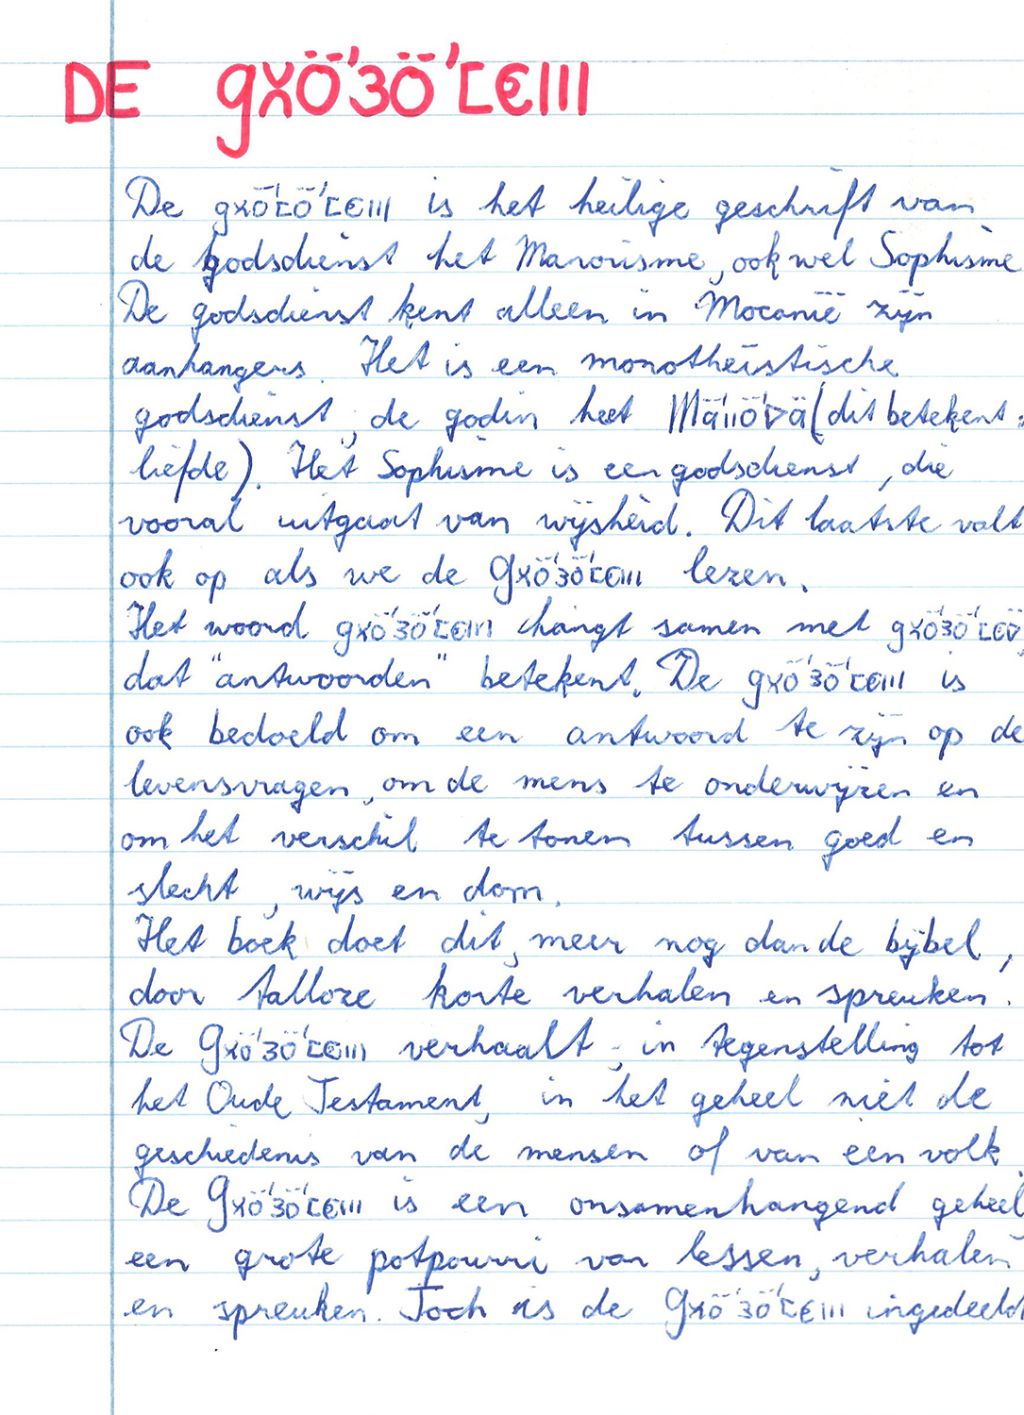 DE gxö'3ö'[€III
De gxö'[ö'[€III is het heilige geschrift van
de godsdienst het Manoïsme, ook wel Sophisme
De godsdienst kent alleen in Mocanië zijn
aanhangers. Het is een monotheïstische
godsdienst, de godin heet Mä'IIö'Dä (dit betekent:
liefde). Het Sophisme is een godsdienst, die
vooral uitgaat van wijsheid. Dit laatste valt
ook op als we de gxö'3ö'[€III lezen.
Het woord gxö'3ö'[€III hangt samen met gxö'3ö'[€
dat "antwoorden" betekent. De gxö'3ö'[€III is
ook bedoeld om een antwoord te zijn op de
levensvragen, om de mens te onderwijzen en
om het verschil te tonen tussen goed en
slecht, wijs en dom.
Het boek doet dit, meer nog dan de bijbel,
door talloze korte verhalen en spreuken.
De Gxö'3ö'[€III verhaalt, in tegenstelling tot
het Oude Testament, in het geheel niet de
geschiedenis van de mensen of van een volk.
De Gxö'3ö'[€III is een onsamenhangend geheel
een grote potpourri van lessen, verhalen
en spreuken. Toch is de Gxö'3ö'[€III ingedeeld